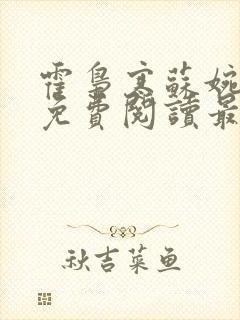 霍梟寒蘇婉
免費閱讀最
秋吉菜鱼